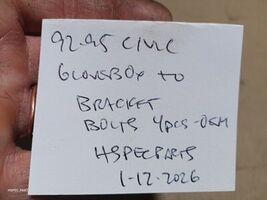 92-95 CIVIC
GLOVEBOX to
BRACKET
BOLTS 4PCS-OEM
HSPECPARTS
1-12-2026